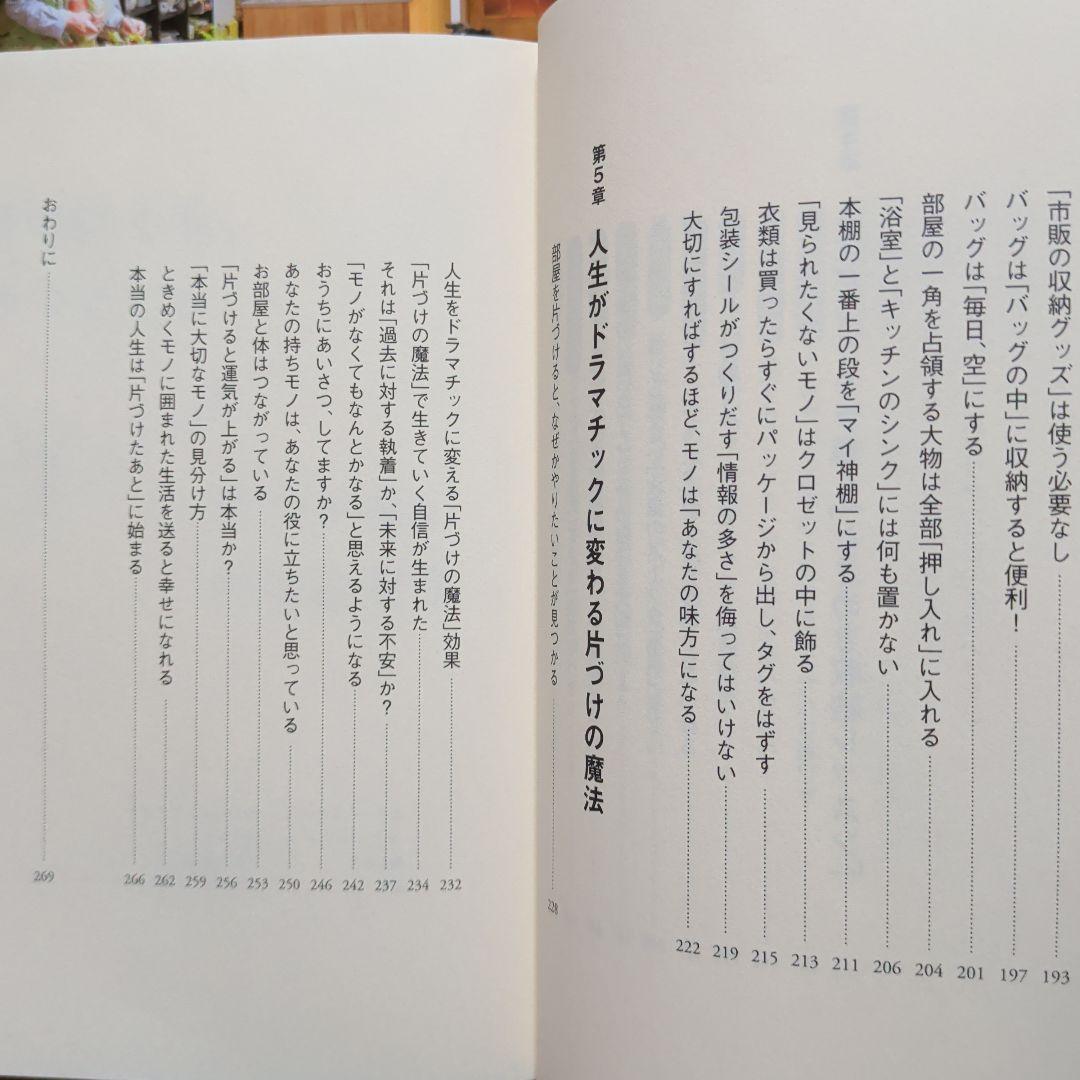 「市販の収納グッズ」は使う必要なし 193
バッグは「バッグの中」に収納すると便利！ 197
バッグは「毎日、空」にする 201
部屋の一角を占領する大物は全部「押し入れ」に入れる 204
「浴室」と「キッチンのシンク」には何も置かない 206
本棚の一番上の段を「マイ神棚」にする 211
「見られたくないモノ」はクロゼットの中に飾る 213
衣類は買ったらすぐにパッケージから出し、タグをはずす 215
包装シールがつくりだす「情報の多さ」を侮ってはいけない 219
大切にすればするほど、モノは「あなたの味方」になる 222
第5章 人生がドラマチックに変わる片づけの魔法
部屋を片づけると、なぜかやりたいことが見つかる 228
人生をドラマチックに変える「片づけの魔法」効果 232
「片づけの魔法」で生きていく自信が生まれた 234
それは「過去に対する執着」か、「未来に対する不安」か？ 237
「モノがなくてもなんとかなる」と思えるようになる 242
おうちにあいさつ、してますか？ 246
あなたの持ちモノは、あなたの役に立ちたいと思っている 250
お部屋と体はつながっている 253
「片づけると運気が上がる」は本当か？ 256
「本当に大切なモノ」の見分け方 259
ときめくモノに囲まれた生活を送ると幸せになれる 262
本当の人生は「片づけたあと」に始まる 266
おわりに 269